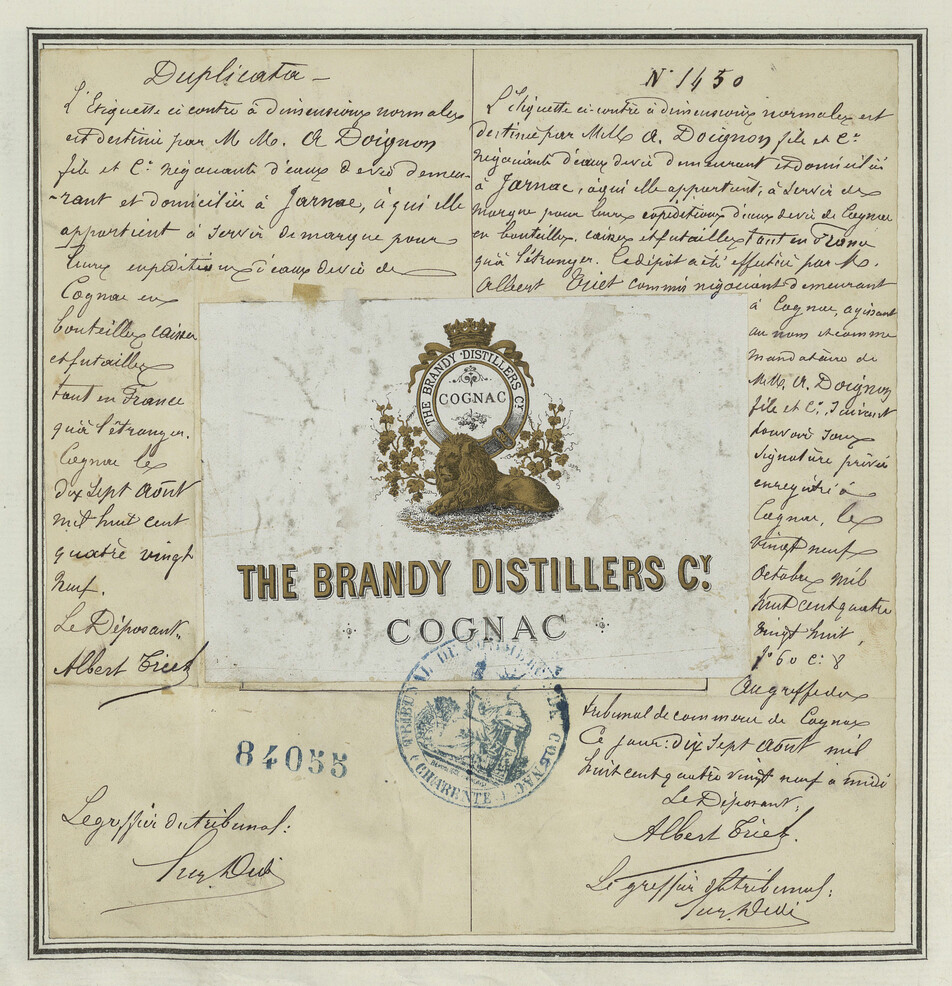 Duplicata —
L'Etiquette ci contre à dimensions normales
est destiné par M M. A Doignon
fils et Cie négociants d'eaux de vie demeu-
-rant et domiciliés à Jarnac, à qui elle
appartient à servir de marque pour
leurs expéditions d'eaux de vie de
Cognac en
bouteilles caisses
et futailles
tant en France
qu'à l'étranger.
Cognac le
dix sept Août
mil huit cent
quatre vingt
neuf.
Le Déposant.
Albert Triet
84055
Le greffier du tribunal:
N° 1450
L'Etiquette ci-contre à dimensions normales est
destinée par MM A. Doignon fils et Cie
négociants d'eaux de vie demeurant et domiciliés
à Jarnac, à qui elle appartient, à servir de
marque pour leurs expéditions d'eaux de vie de Cognac
en bouteilles, caisses et futailles tant en France
qu'à l'étranger. Le dépôt a été effectué par M.
Albert Triet commis négociant demeurant
à Cognac, agissant
au nom et comme
mandataire de
M.M. A. Doignon
fils et Cie, suivant
pouvoir sous
signature privée
enregistré à
Cognac, le
vingt neuf
Octobre mil
huit cent quatre
vingt huit,
fo 60 c. 8
Au greffe du
tribunal de commerce de Cognac
Ce jour: dix sept Août mil
huit cent quatre vingt neuf à midi
Le Déposant,
Albert Triet.
Le greffier du tribunal:
THE BRANDY DISTILLERS CY
COGNAC
THE BRANDY DISTILLERS CY.
COGNAC
TRIBUNAL DE COMMERCE DE COGNAC
(CHARENTE)